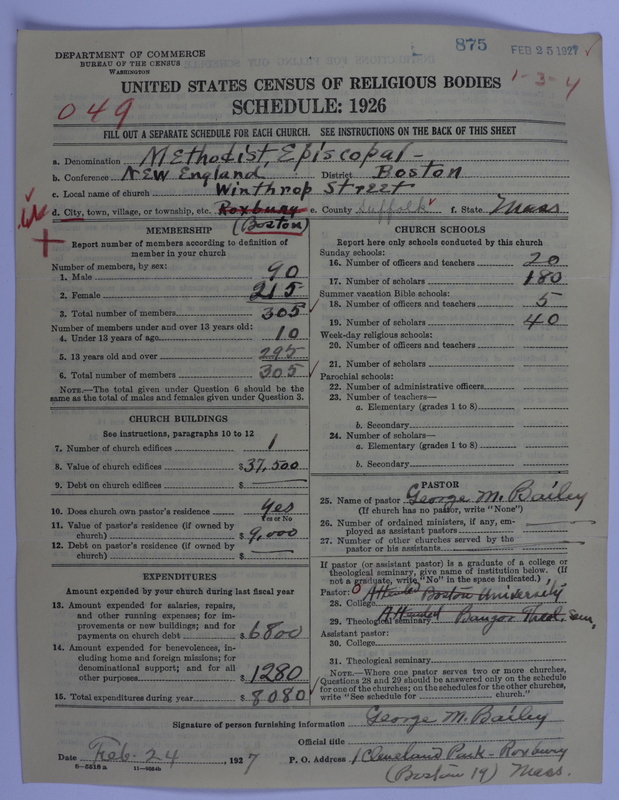 875 FEB 25 1927
DEPARTMENT OF COMMERCE
BUREAU OF THE CENSUS
WASHINGTON
1-3=4
UNITED STATES CENSUS OF RELIGIOUS BODIES
049
SCHEDULE: 1926
FILL OUT A SEPARATE SCHEDULE FOR EACH CHURCH. SEE INSTRUCTIONS ON THE BACK OF THIS SHEET
a. Denomination Methodist Episcopal
b. Conference New England District Boston
c. Local name of church Winthrop Street
d. City, town, village, or township, etc. Roxbury e. County Suffolk f. State Mass
(Boston)
MEMBERSHIP
Report number of members according to definition of
member in your church
Number of members, by sex:
1. Male 90
2. Female 215
3. Total number of members 305
Number of members under and over 13 years old:
4. Under 13 years of age 10
5. 13 years old and over 295
6. Total number of members 305
NOTE.—The total given under Question 6 should be the
same as the total of males and females given under Question 3.
CHURCH BUILDINGS
See instructions, paragraphs 10 to 12
7. Number of church edifices 1
8. Value of church edifices $37,500
9. Debt on church edifices $
10. Does church own pastor's residence? Yes
Yes or No
11. Value of pastor's residence (if owned by
church) $9,000
12. Debt on pastor's residence (if owned by
church) $
EXPENDITURES
Amount expended by your church during last fiscal year
13. Amount expended for salaries, repairs,
and other running expenses; for im-
provements or new buildings; and for
payments on church debt $6800
14. Amount expended for benevolences, in-
cluding home and foreign missions; for
denominational support; and for all
other purposes $1280
15. Total expenditures during year $8080
CHURCH SCHOOLS
Report here only schools conducted by this church
Sunday schools:
16. Number of officers and teachers 20
17. Number of scholars 180
Summer vacation Bible schools:
18. Number of officers and teachers 5
19. Number of scholars 40
Week-day religious schools:
20. Number of officers and teachers
21. Number of scholars
Parochial schools:
22. Number of administrative officers
23. Number of teachers—
a. Elementary (grades 1 to 8)
b. Secondary
24. Number of scholars—
a. Elementary (grades 1 to 8)
b. Secondary
PASTOR
25. Name of pastor George M. Bailey
(If church has no pastor, write "None")
26. Number of ordained ministers, if any, em-
ployed as assistant pastors
27. Number of other churches served by the
pastor or his assistants
If pastor (or assistant pastor) is a graduate of a college or
theological seminary, give name of institution below. (If
not a graduate, write "No" in the space indicated.)
Pastor: Attended Boston University
28. College
29. Theological seminary Attended Bangor Theol. Sem.
Assistant pastor:
30. College
31. Theological seminary
NOTE.—Where one pastor serves two or more churches,
Questions 28 and 29 should be answered only on the schedule
for one of the churches; on the schedules for the other churches,
write "See schedule for church."
Signature of person furnishing information George M. Bailey
Official title
Date Feb. 24, 1927 P. O. Address 1 Cleveland Park - Roxbury
8-5518a (Boston 19) Mass.